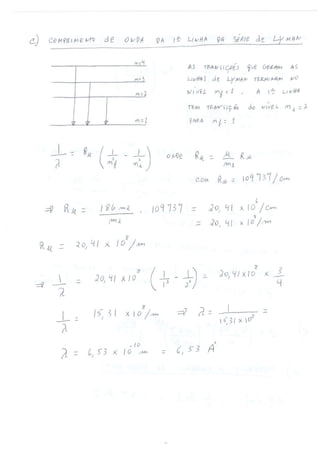 c) COMPRIMENTO DE ONDA DA 1ª LINHA DA SÉRIE DE LYMAN
n=4
n=3
n=2
n=1
AS TRANSIÇÕES QUE GERAM AS
LINHAS DE LYMAN TERMINAM NO
NÍVEL nf=1. A 1ª LINHA
TEM TRANSIÇÃO DO NÍVEL ni=2
PARA nf=1
1/λ = Rμ (1/nf² - 1/ni²) ONDE Rμ = μ/me R∞
COM R∞ = 109737/cm
⇒ Rμ = 186 me/me . 109737 = 20,41 x 10⁶/cm
= 20,41 x 10⁸/m
Rμ = 20,41 x 10⁸/m
⇒ 1/λ = 20,41 x 10⁸ (1/1² - 1/2²) = 20,41 x 10⁸ x 3/4
1/λ = 15,31 x 10⁸/m ⇒ λ = 1/15,31 x 10⁸ =
λ = 6,53 x 10⁻¹⁰ m = 6,53 A°